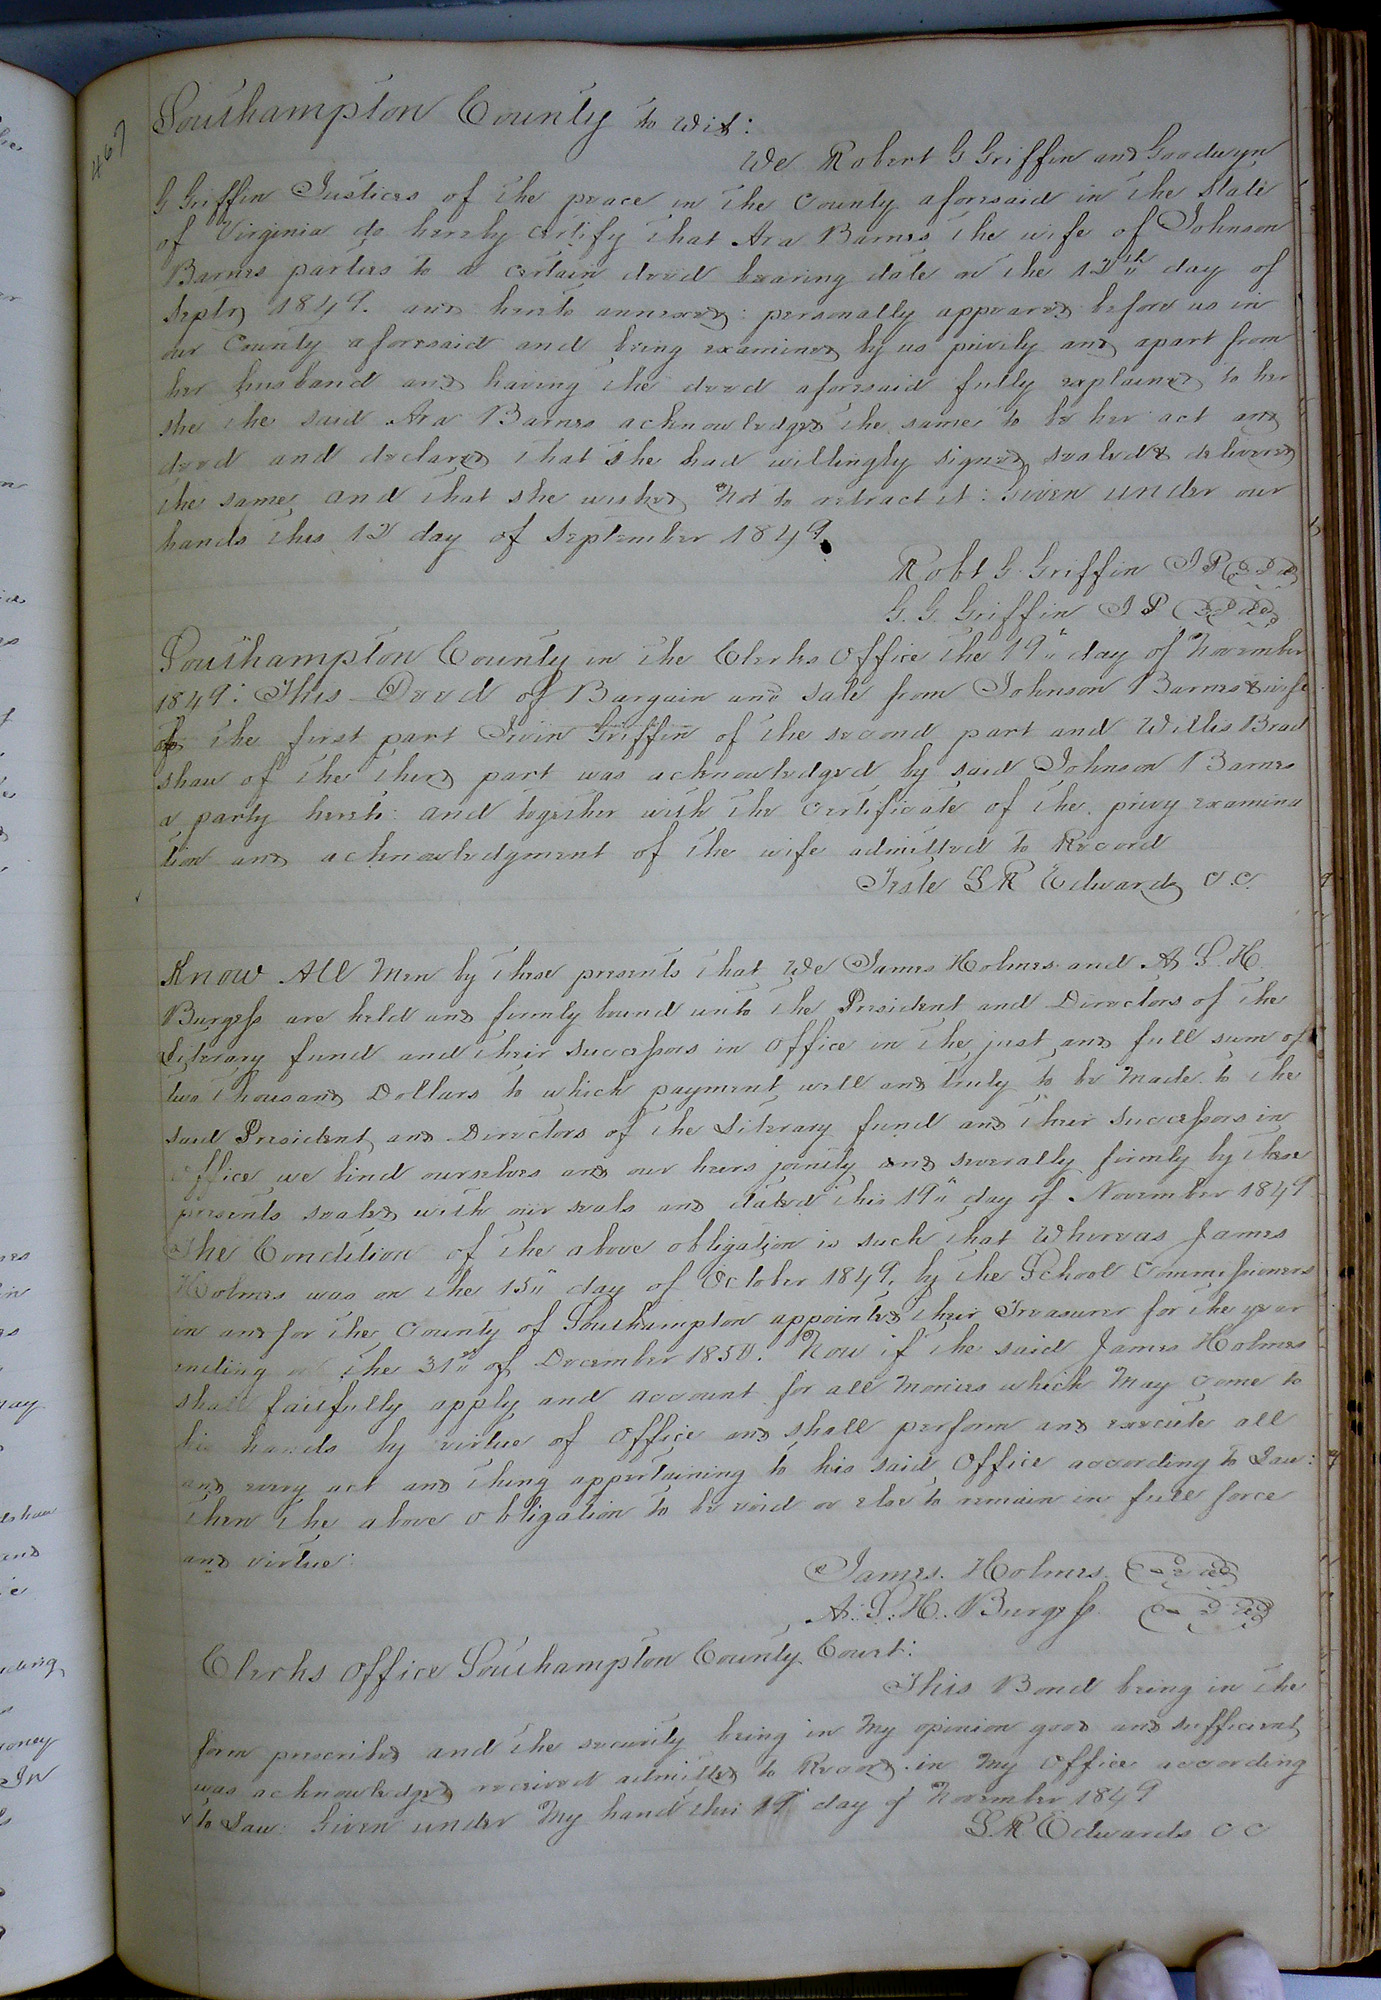 467
Southampton County to wit:
We Robert G Griffin and Goodwyn
G Griffin Justices of the peace in the County aforesaid in the State
of Virginia do hereby certify that Ara Barnes the wife of Johnson
Barnes parties to a certain deed bearing date on the 12th day of
Septr 1849. and hereto annexed: personally appeared before us in
our County aforesaid and being examined by us privily and apart from
her husband and having the deed aforesaid fully explained to her
she the said Ara Barnes acknowledged the same to be her act and
deed and declared that she had willingly signed sealed & delivered
the same, and that she wished not to retract it: Given under our
hands this 12 day of September 1849.
Robt G. Griffin J P Seal
G. G. Griffin J P Seal
Southampton County in the Clerks Office the 19" day of November
1849: This Deed of Bargain and sale from Johnson Barnes & wife
of the first part Irvin Griffin of the second part and Willis Brad
shaw of the third part was acknowledged by said Johnson Barnes
a party hereto: and together with the certificate of the privy examina
tion and acknowledgment of the wife admitted to Record
Teste L R Edwards C.C.
Know All Men by these presents that We James Holmes and A S. H.
Burgess are held and firmly bound unto the President and Directors of the
Literary fund and their successors in Office in the just and full sum of
two thousand Dollars to which payment well and truly to be Made to the
said President and Directors of the Literary fund and their successors in
office we bind ourselves and our heirs jointly and severally firmly by these
presents sealed with our seals and dated this 19" day of November 1849
The Condition of the above obligation is such that Whereas James
Holmes was on the 15" day of October 1849, by the School Commissioners
in and for the County of Southampton appointed their Treasurer for the year
ending on the 31st of December 1850. Now if the said James Holmes
shall faitfully apply and account for all monies which May come to
his hands by virtue of Office and shall perform and execute all
and every act and thing appertaining to his said Office according to Law:
then the above obligation to be void or else to remain in full force
and virtue:
James. Holmes. Seal
A. S. H. Burgess Seal
Clerks Office Southampton County Court:
This Bond being in the
form prescribed and the security being in My opinion good and sufficient
was acknowledged received admitted to Record in My Office according
to Law: Given under My hand this 19" day of November 1849
L R Edwards C C